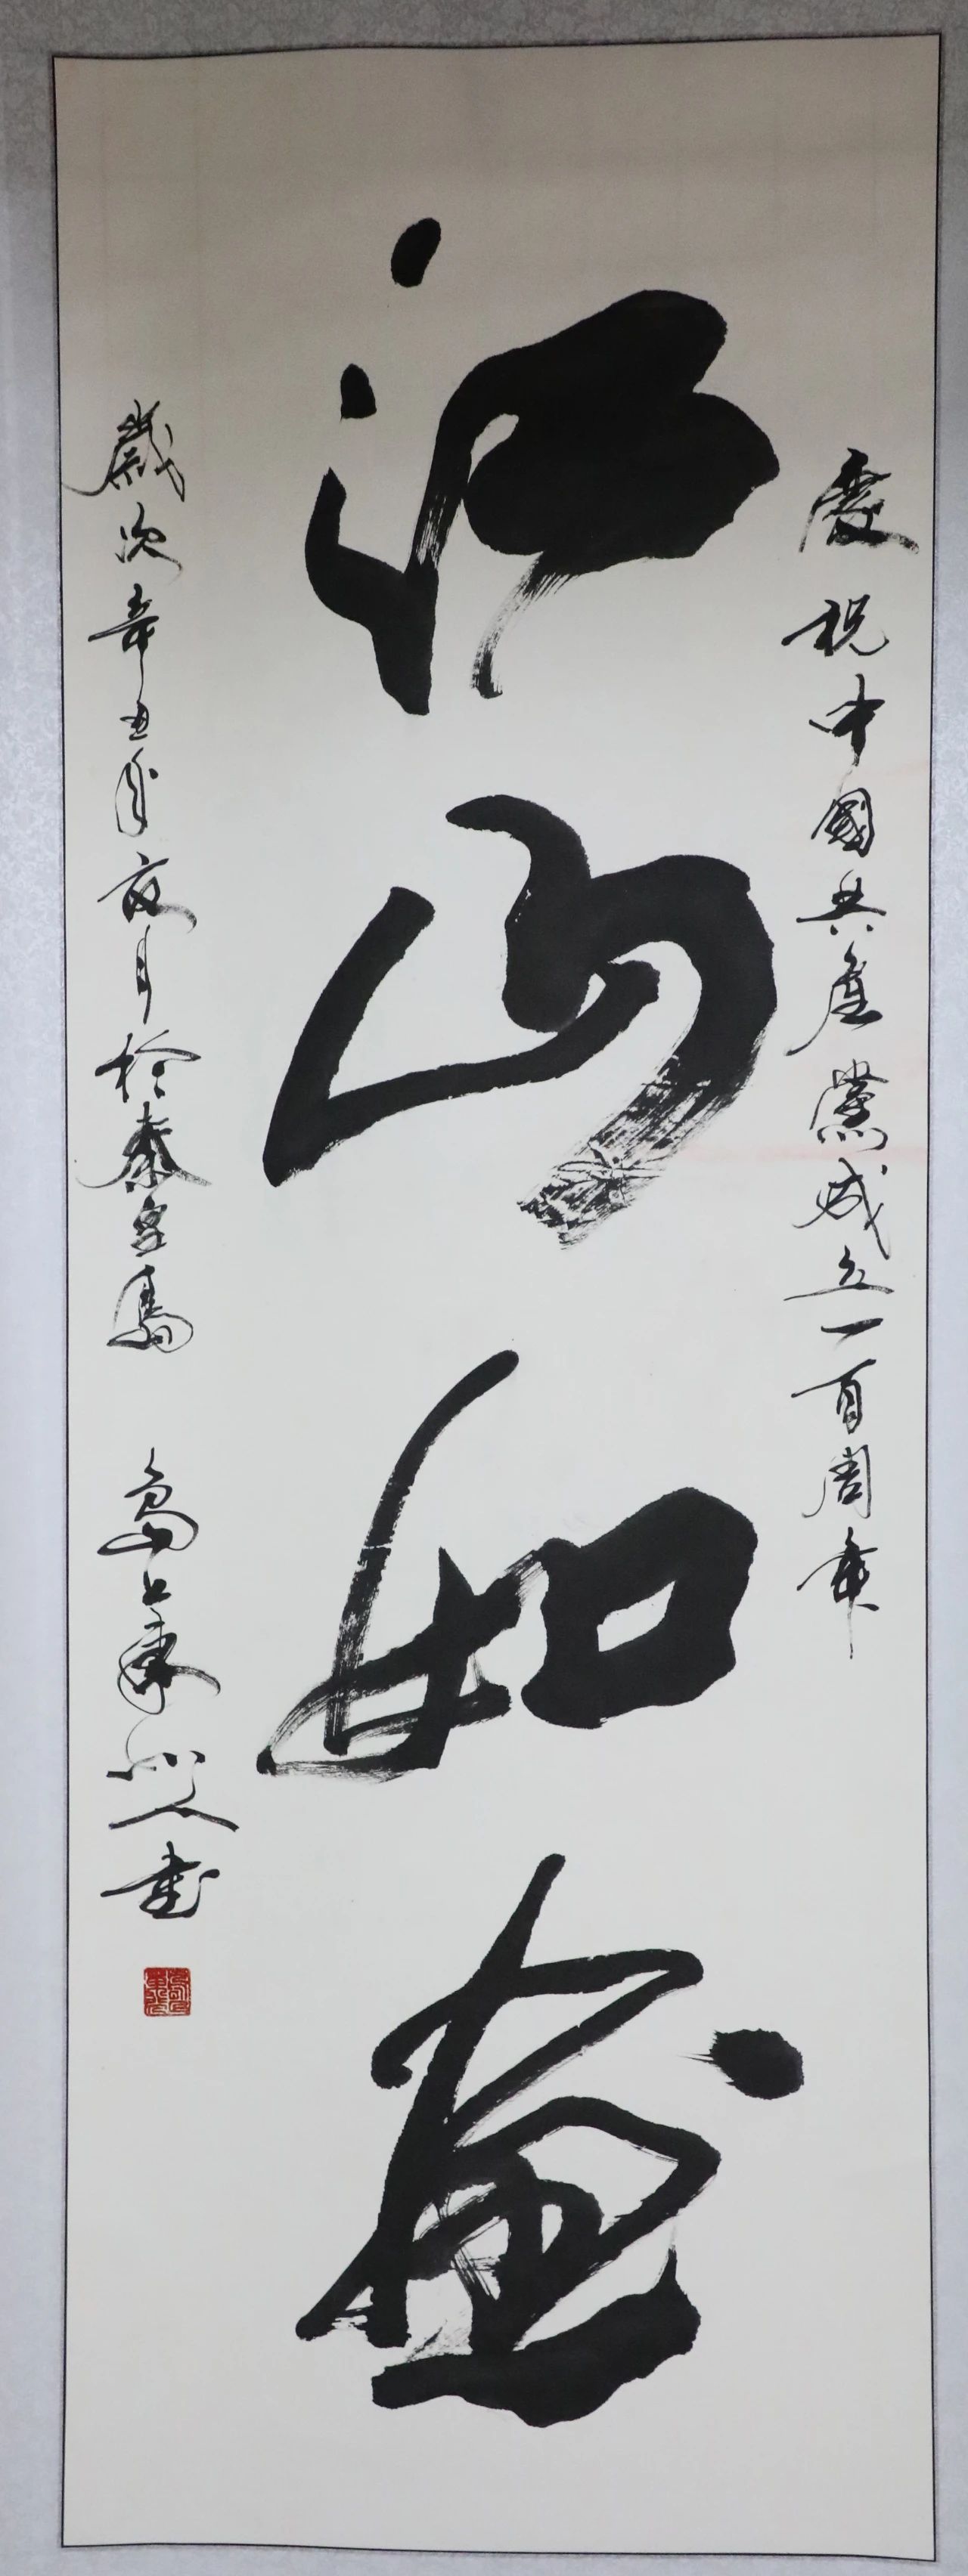 慶祝中國共產黨成立一百周年
江山如畫
歲次辛丑年夏月於秦皇島
島上
山人書